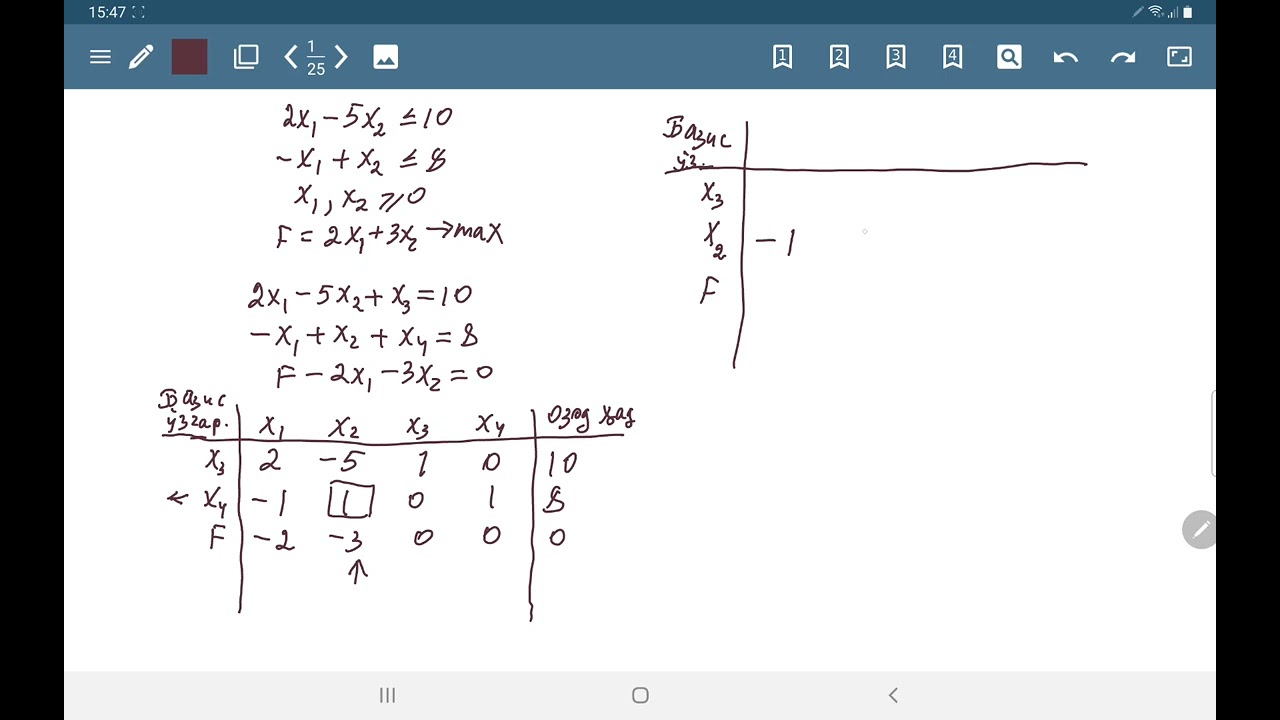 15:47
1
25
1 2 3 4
2x₁ - 5x₂ ≤ 10
-x₁ + x₂ ≤ 8
x₁, x₂ ⩾ 0
F = 2x₁ + 3x₂ → max
2x₁ - 5x₂ + x₃ = 10
-x₁ + x₂ + x₄ = 8
F - 2x₁ - 3x₂ = 0
Базис
ўзгар. x₁ x₂ x₃ x₄ Озод ҳад
x₃ 2 -5 1 0 10
← x₄ -1 1 0 1 8
F -2 -3 0 0 0
↑
Базис
ўз.
x₃
x₂ -1
F